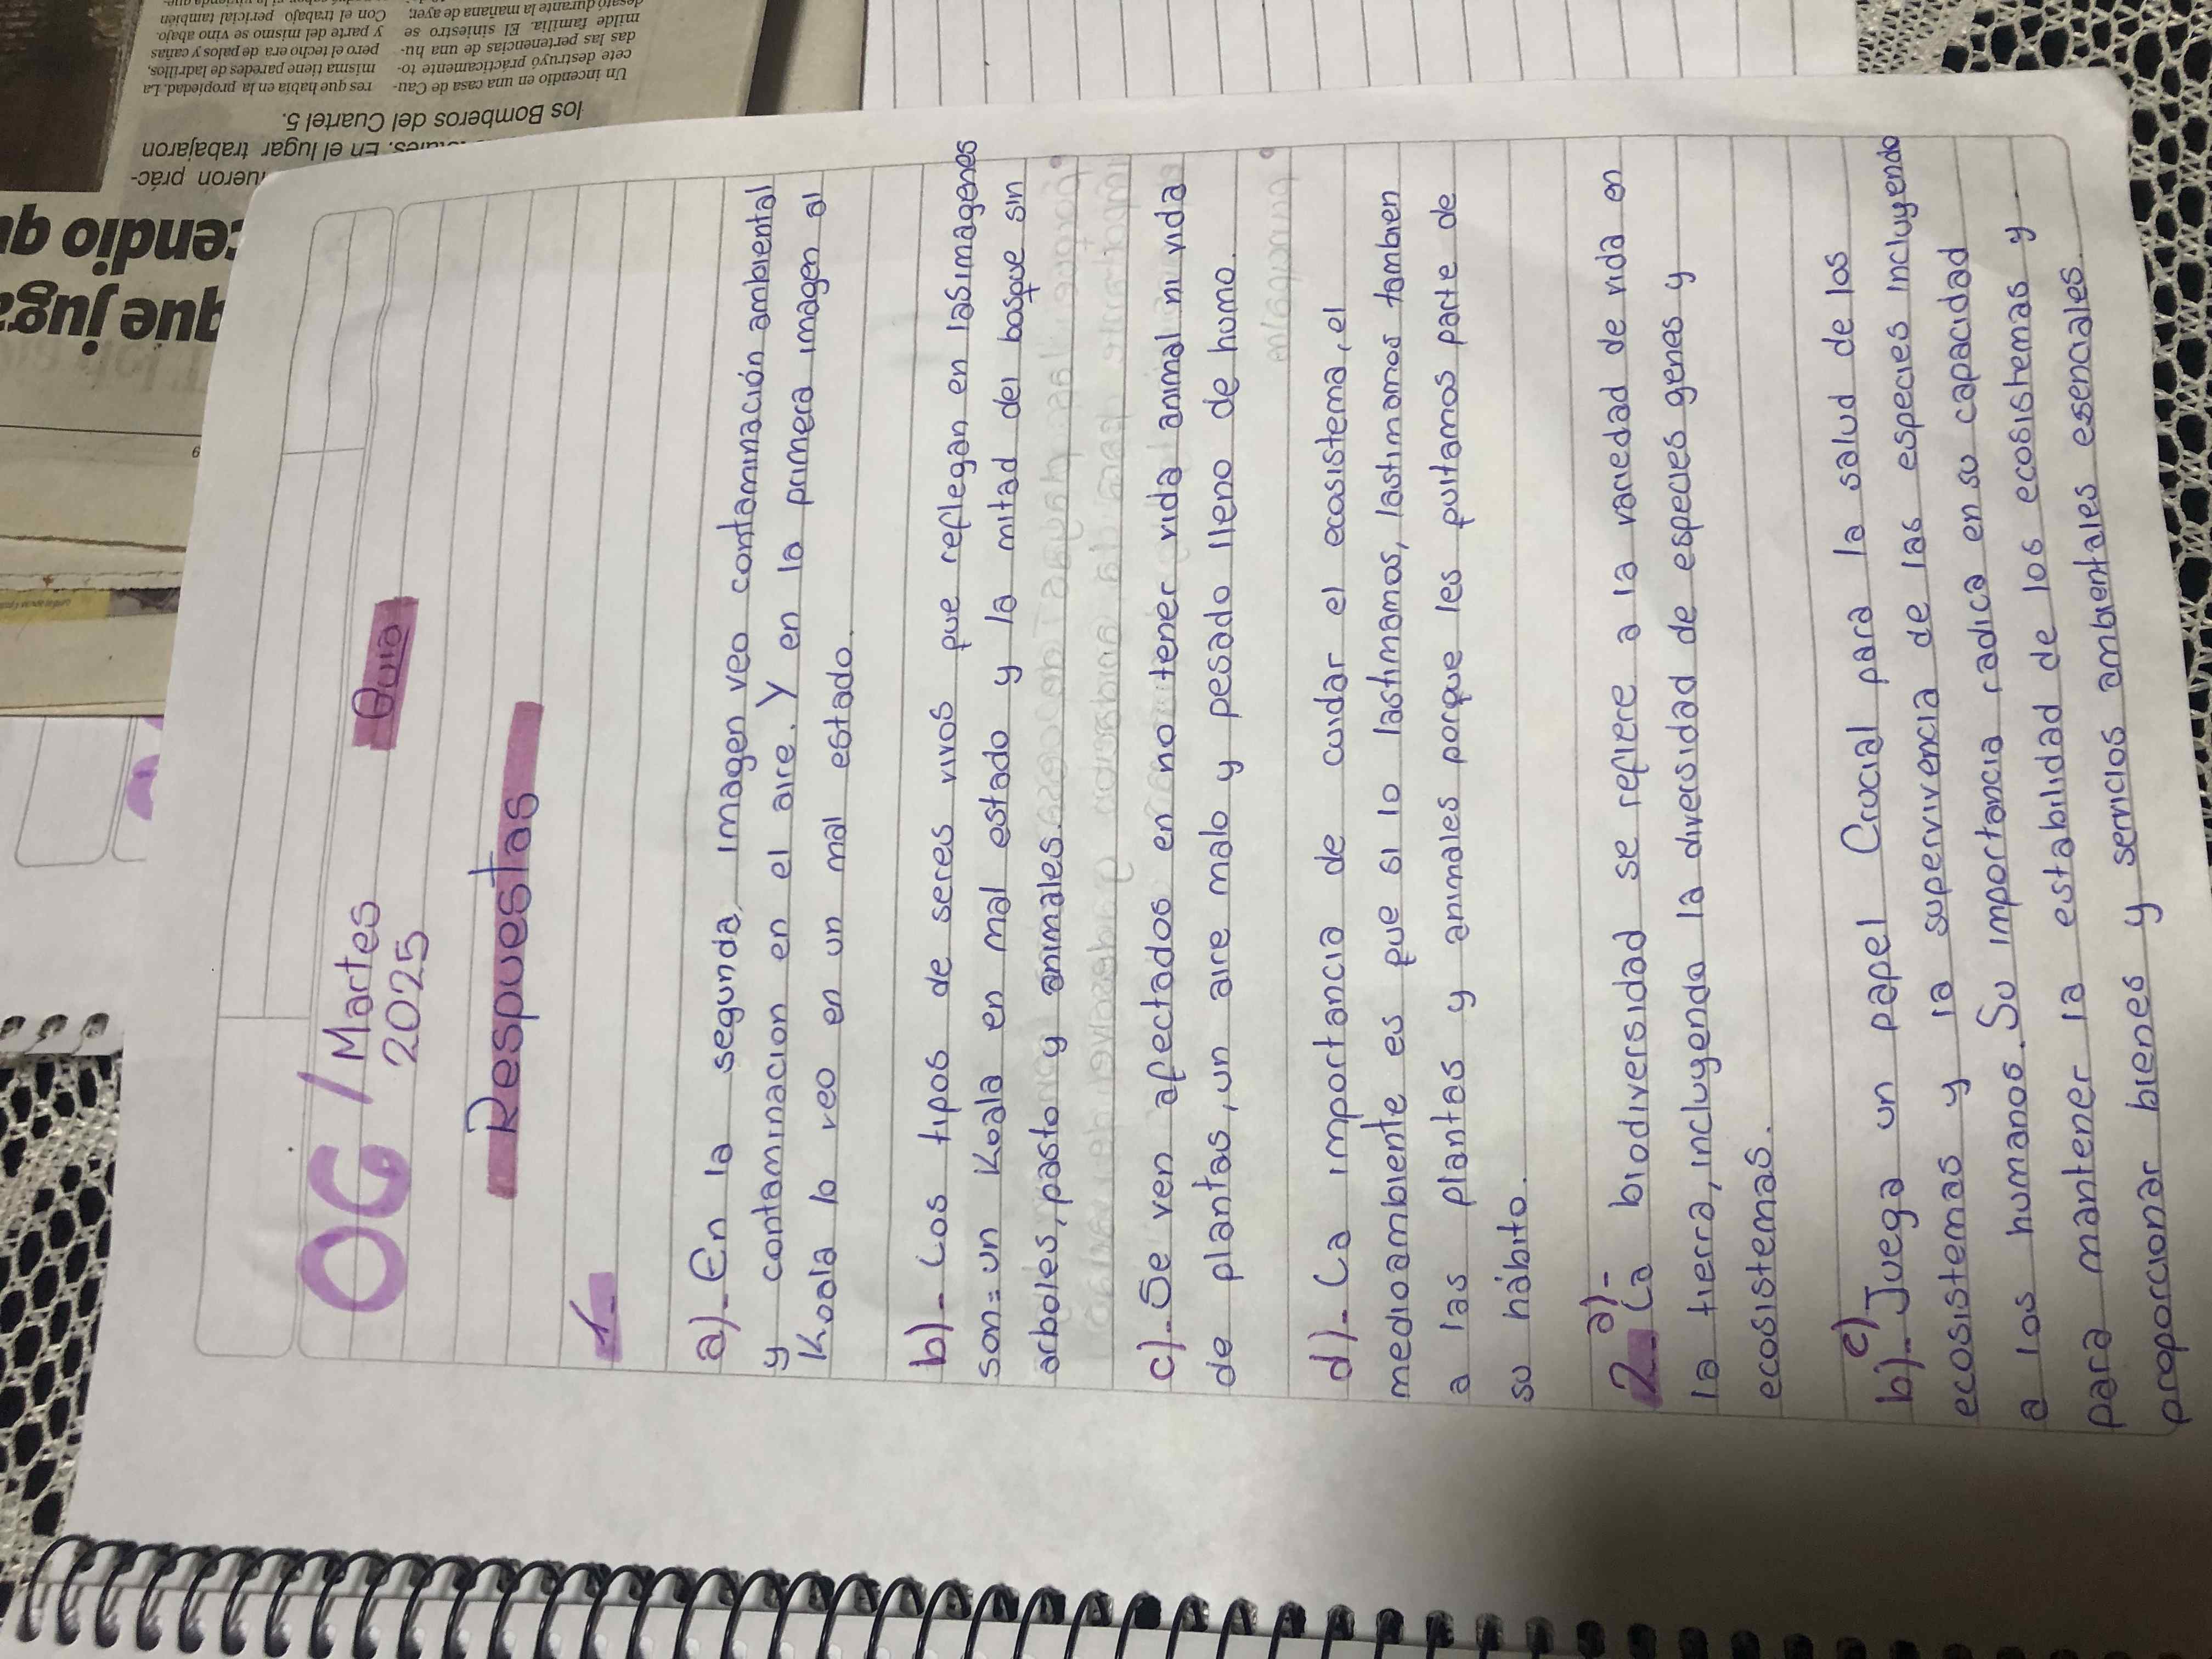 06 / Martes
2025
Guia
Respuestas
1-
a)- En la segunda, imagen veo contaminación ambiental
y contaminacion en el aire. Y en la primera imagen al
Koala lo veo en un mal estado.
b)- Los tipos de seres vivos que reflegan en las imagenes
son= un Koala en mal estado y la mitad del bosque sin
arboles, pasto y animales.
c)- Se ven afectados en no tener vida animal ni vida
de plantas, un aire malo y pesado lleno de humo.
d)- La importancia de cuidar el ecosistema, el
medioambiente es que si lo lastimamos, lastimamos tambien
a las plantas y animales porque les quitamos parte de
su hábito.
2- a)- La biodiversidad se refiere a la variedad de vida en
la tierra, incluyendo la diversidad de especies genes y
ecosistemas.
b) c)- Juega un papel Crucial para la salud de los
ecosistemas y la supervivencia de las especies incluyendo
a los humanos. Su importancia radica en su capacidad
para mantener la estabilidad de los ecosistemas y
proporcionar bienes y servicios ambientales esenciales.
cendio qu
que juga
fueron prác-
En el lugar trabajaron
los Bomberos del Cuartel 5.
Un incendio en una casa de Cau-
cete destruyó prácticamente to-
das las pertenencias de una hu-
milde familia. El siniestro se
desató durante la mañana de ayer,
res que había en la propiedad. La
misma tiene paredes de ladrillos,
pero el techo era de palos y cañas
y parte del mismo se vino abajo.
Con el trabajo pericial también